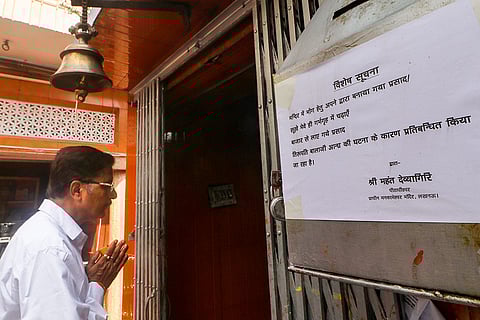 विशेष सूचना
मन्दिर में भोग हेतु अपने द्वारा बनाया गया प्रसाद/
सूखे मेवे ही गर्भगृह में चढ़ाएँ
बाजार से लाए गये प्रसाद
तिरूपति बालाजी अन्ध की घटना के कारण प्रतिबन्धित किया
जा रहा है।
द्वारा-
श्री महंत देव्यागिरि
पीठाधीश्वर
प्राचीन मनकामेश्वर मंदिर, लखनऊ।